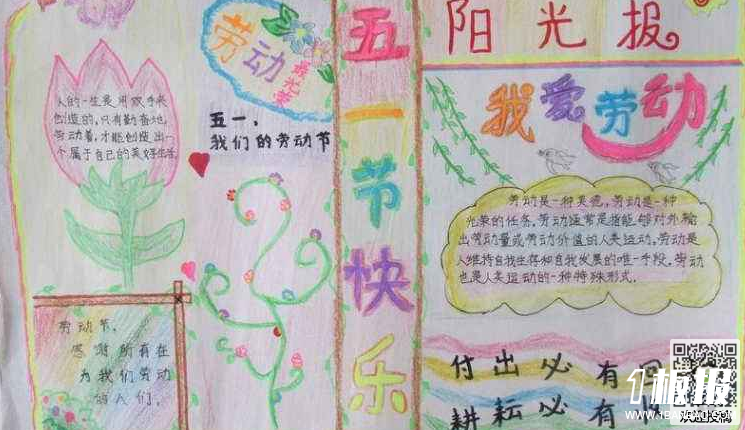 劳动
最光荣
人的一生是用双手来
创造的,只有勤奋地,
劳动着,才能创造出一
个属于自己的美好生活
五一、
我们的劳动节
劳动节,
感谢所有在
为我们劳动
的人们。
五一节快乐
阳光报
我爱劳动
劳动是一种美德,劳动是一种
光荣的任务。劳动通常是指能够对外输
出劳动量或劳动价值的人类运动。劳动是
人维持自我生存和自我发展的唯一手段。劳动
也是人类运动的一种特殊形式.
付出必有回
耕耘必有
1板报
WWW.1BANBAO.COM
欢迎投稿